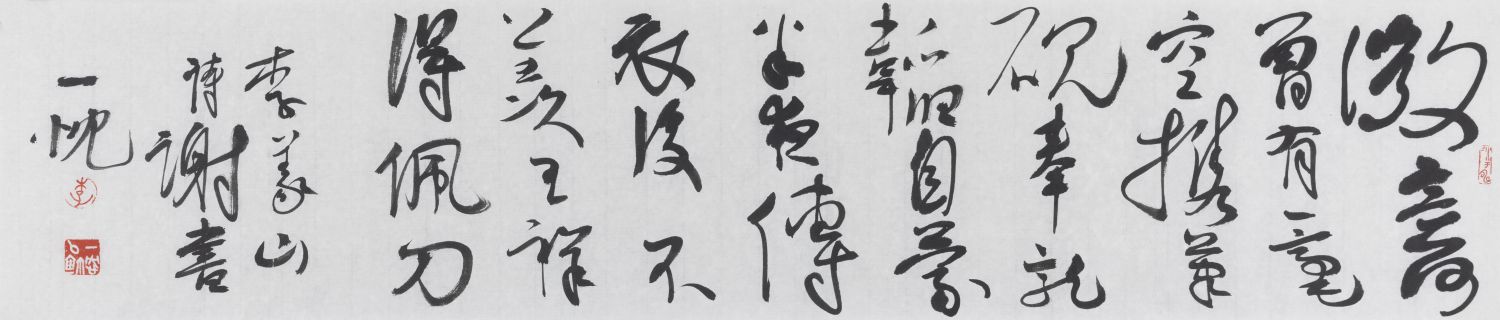 微意何
曾有一毫
空携筆
硯奉龍
韜自蒙
半夜傳
衣後不
羨王祥
得佩刀
李義山
詩謝書
一忱
李